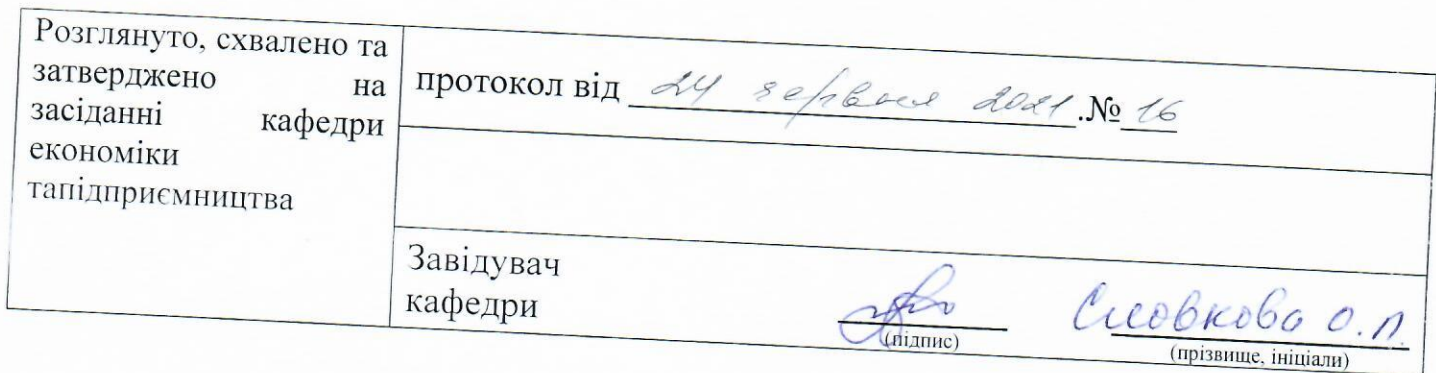 Розглянуто, схвалено та
затверджено на
засіданні кафедри
економіки
тапідприємництва
протокол від 24 червня 2021.№ 16
Завідувач
кафедри
(підпис)
Словкова О.П.
(прізвище, ініціали)